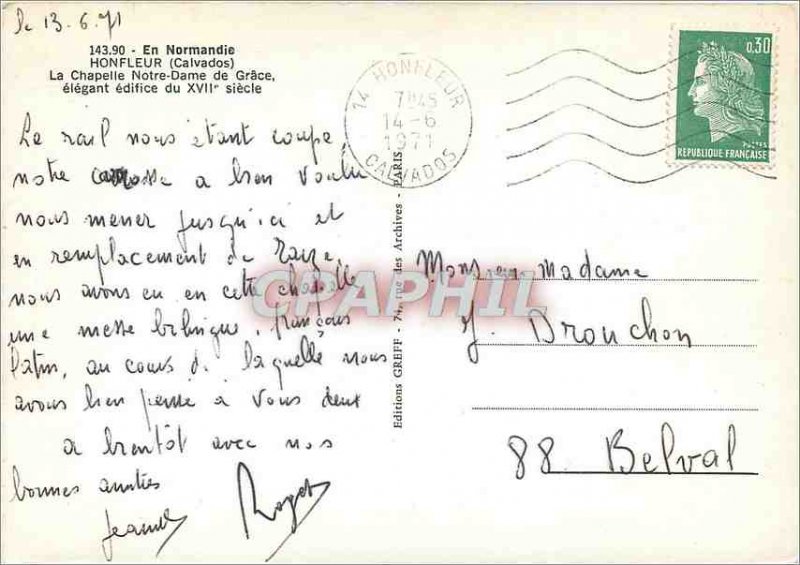 le 13.6.71
143.90 - En Normandie
HONFLEUR (Calvados)
La Chapelle Notre-Dame de Grâce,
élégant édifice du XVIIe siècle
Le rail nous étant coupé,
notre a bien voulu
nous mener jusqu'ici et
en remplacement de
nous avons eu en cette chapelle
une messe bilingue, français
latin, au cours de laquelle nous
avons bien pensé à vous deux
a bientôt avec nos
bonnes amitiés
Jeanne Roger
14 HONFLEUR
7H45
14-6
1971
CALVADOS
0,30
POSTES
REPUBLIQUE FRANÇAISE
Editions GREFF - 74, rue des Archives - PARIS
CPAPHIL
Monsieur Madame
J. Drouchon
88 Belval